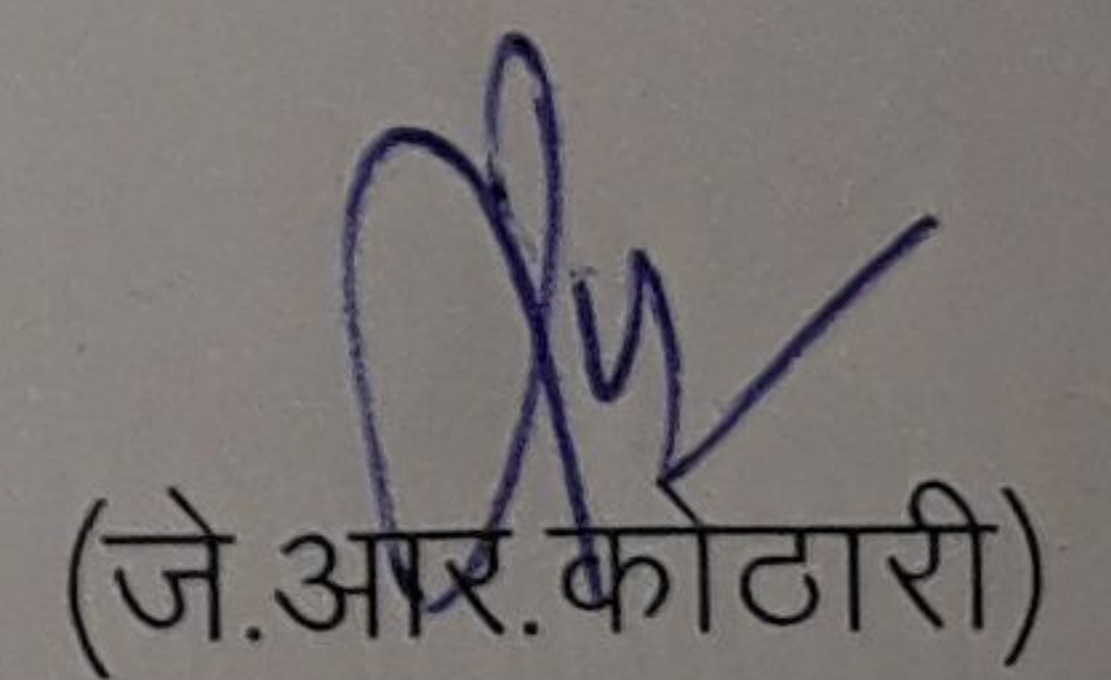 (जे.आर.कोठारी)